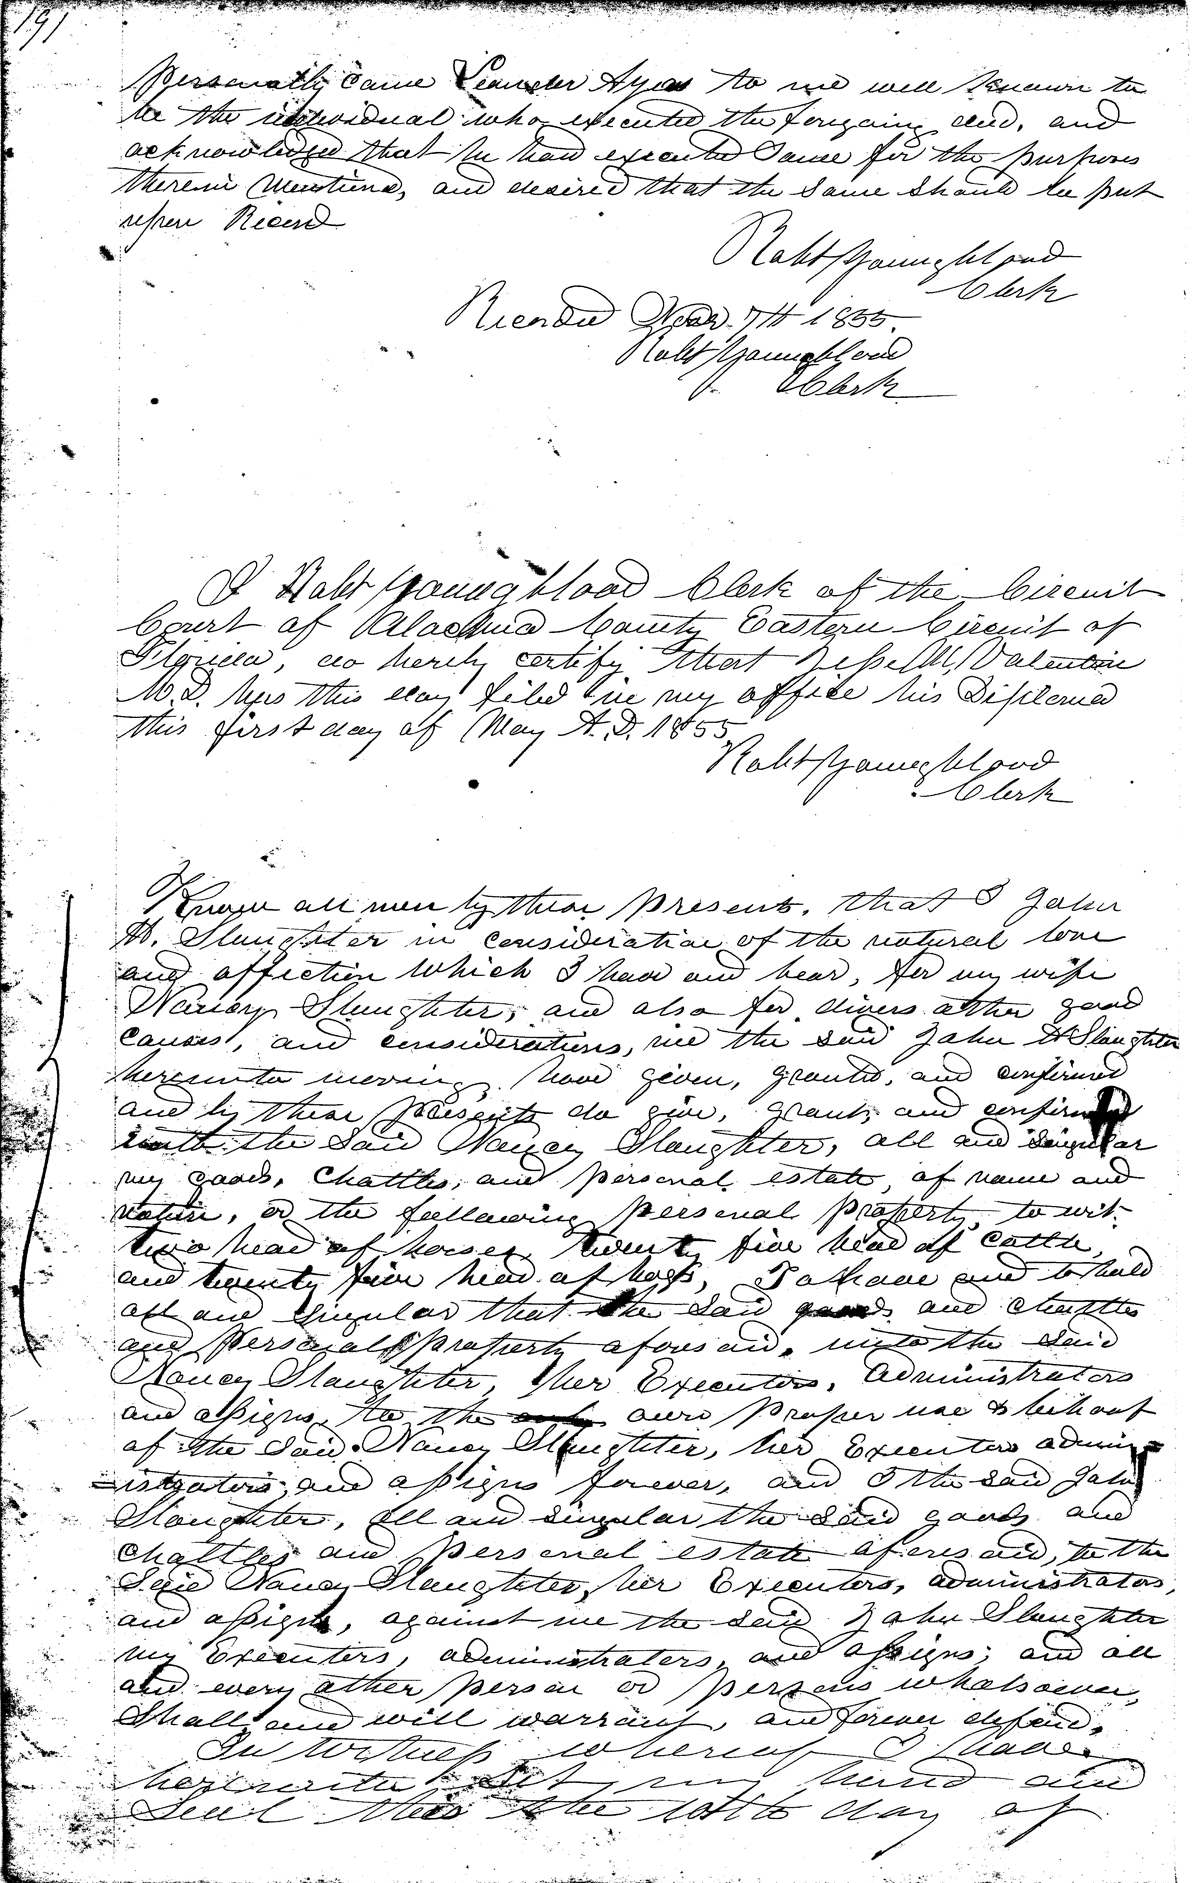 191
Personally came Leander Ayers to me well known to
be the individual who executed the foregoing deed, and
acknowledged that he had executed Same for the purposes
therein Mentioned, and desired that the Same Should be put
upon Record
Robt Youngblood
Clerk
Recorded 7th 1855.
Robt Youngblood
Clerk
I Robt Youngblood Clerk of the Circuit
Court of Alachua County Eastern Circuit of
Florida, do hereby certify that Jesse M. Valentine
M.D. has this day filed in my office his Diploma
this first day of May A.D. 1855
Robt Youngblood
Clerk
Know all men by these presents, that I John
H. Slaughter in consideration of the natural love
and affection which I have and bear, for my wife
Nancy Slaughter, and also for divers other good
causes, and considerations, me the said John H Slaughter
hereunto moving, have given, granted, and confirmed
and by these presents do give, grant, and confirm
unto the Said Nancy Slaughter, all and singular
my goods, chattles, and personal estate, of name and
nature, or the following personal property, to wit.
two head of horses, twenty five head of cattle,
and twenty five head of hogs, To have and to hold
all and singular that the said goods and chattles
and personal property aforesaid, unto the Said
Nancy Slaughter, her Executors, administrators
and assigns, to the own proper use & behoof
of the Said Nancy Slaughter, her Executors admin=
=istrators, and assigns forever, and I the said John
Slaughter, all and singular the said goods and
chattles and personal estate aforesaid, to the
Said Nancy Slaughter, her Executors, administrators,
and assigns, against me the said John Slaughter
my Executors, administrators, and assigns; and all
and every other person or persons whatsoever,
Shall and will warrant, and forever defend.
In witness whereof I have
hereunto Set my hand and
Seal this the day of